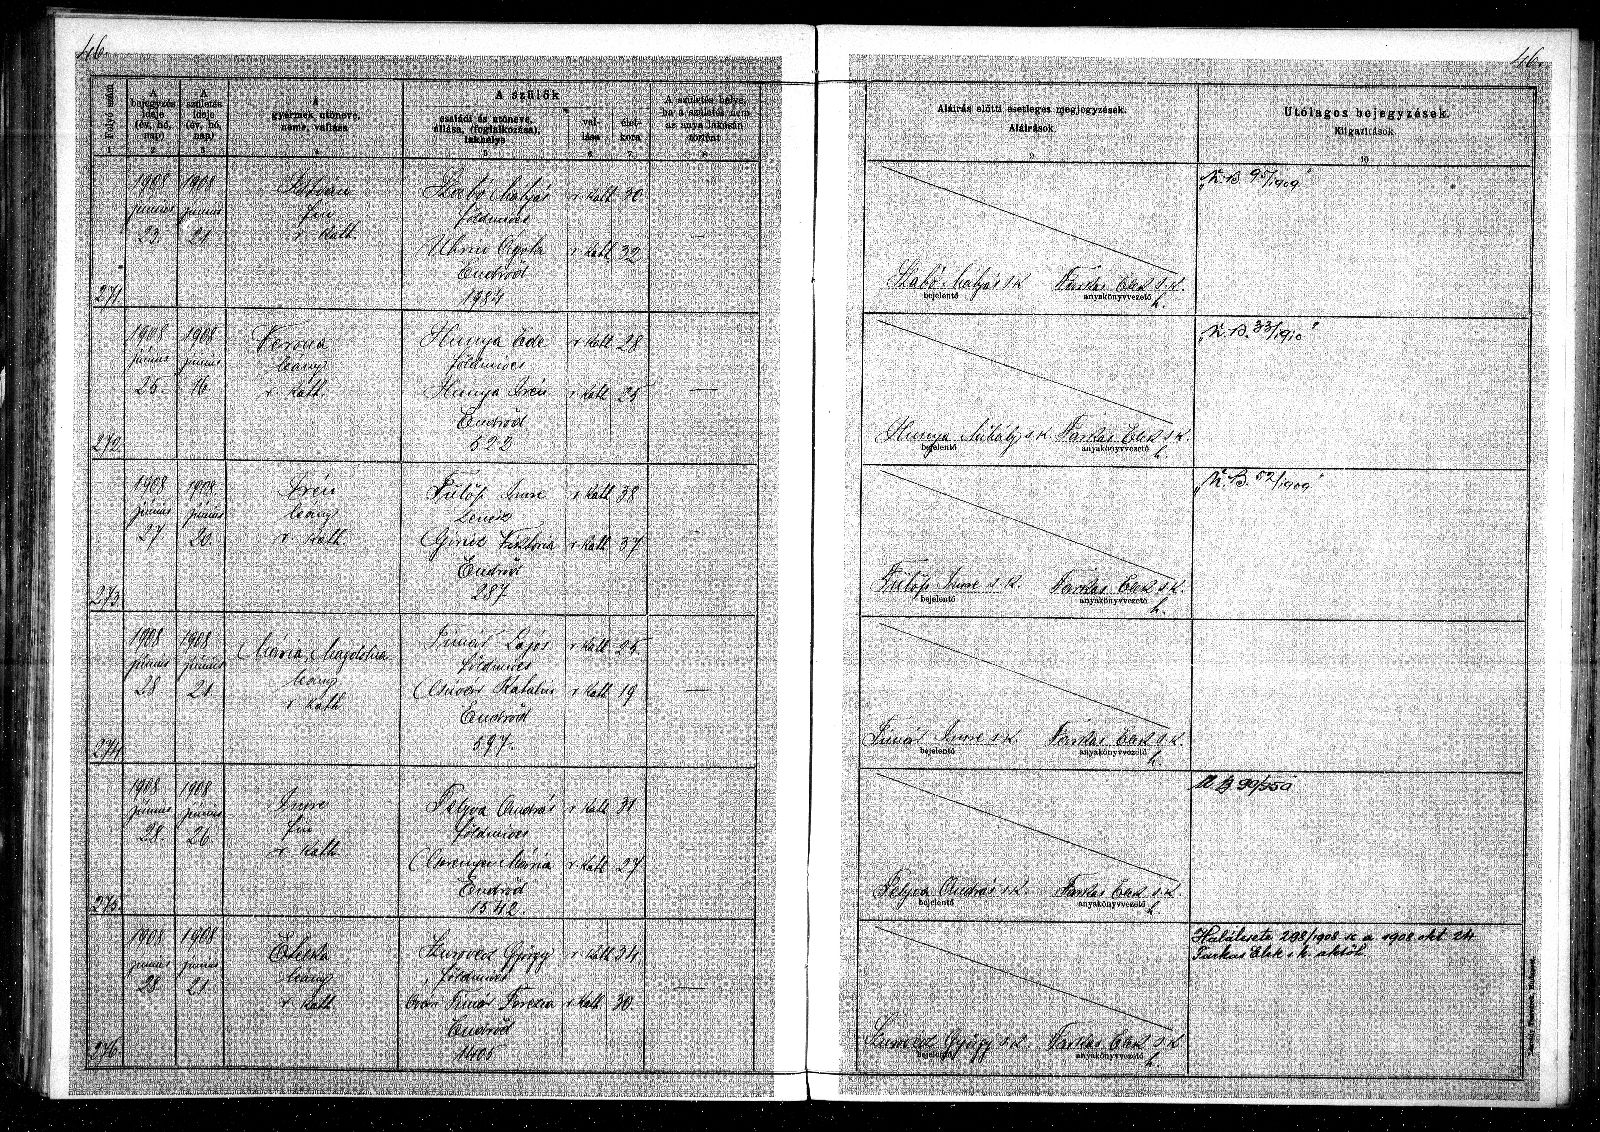 46.
46.
Folyó szám
A bejegyzés ideje (év, hó, nap)
A születés ideje (év, hó, nap)
A gyermek utóneve, neme, vallása
A szülők
családi és utóneve, állása, (foglalkozása), lakhelye
vallása
életkora
A születés helye, ha a születés nem az anya lakásán történt
Aláírás előtti esetleges megjegyzések.
Aláírások.
Utólagos bejegyzések.
Kiigazítások.
1 2 3 4 5 6 7 8 9 10
271.
1908 június 23.
1908 június 21.
István
fiu
r. kath.
Szabó Mátyás r. kath 30.
földmives
Uhrin Ágota r. kath 32
Endrőd
1984
Szabó Mátyás s.k. Farkas Elek s.k.
bejelentő anyakönyvvezető
h.
„N. B. 95/1909"
272.
1908 június 25.
1908 június 16.
Verona
leány
r. kath.
Hunya Ede r. kath 28
földmives
Hunya Irén r. kath 25
Endrőd
522
Hunya Mihály s.k. Farkas Elek s.k.
bejelentő anyakönyvvezető
h.
„N. B. 33/1910"
273.
1908 június 27
1908 június 20.
Irén
leány
r. kath.
Fülöp Imre r. kath 38
zenész
Viktória r. kath 37
Endrőd
287
Fülöp Imre s.k. Farkas Elek s.k.
bejelentő anyakönyvvezető
h.
„N. B. 52/1909"
274.
1908 június 28
1908 június 21.
Mária, Magdolna
leány
r. kath
Timár Lajos r. kath 25
földmives
Csüvér Katalin r. kath 19
Endrőd
597.
Timár Imre s.k. Farkas Elek s.k.
bejelentő anyakönyvvezető
h.
275.
1908 június 28.
1908 június 26.
Imre
fiu
r. kath.
Pelyva András r. kath 31
földmives
Mária r. kath 27
Endrőd
1542.
Pelyva András s.k. Farkas Elek s.k.
bejelentő anyakönyvvezető
h.
276.
1908 június 28
1908 június 21
Etelka
leány
r. kath
György r. kath 34
földmives
Timár Terézia r. kath. 30.
Endrőd
1405
György s.k. Farkas Elek s.k.
bejelentő anyakönyvvezető
h.
Halálesete 298/1908 sz. a. 1908 okt. 24.
Farkas Elek s. k. aktól.